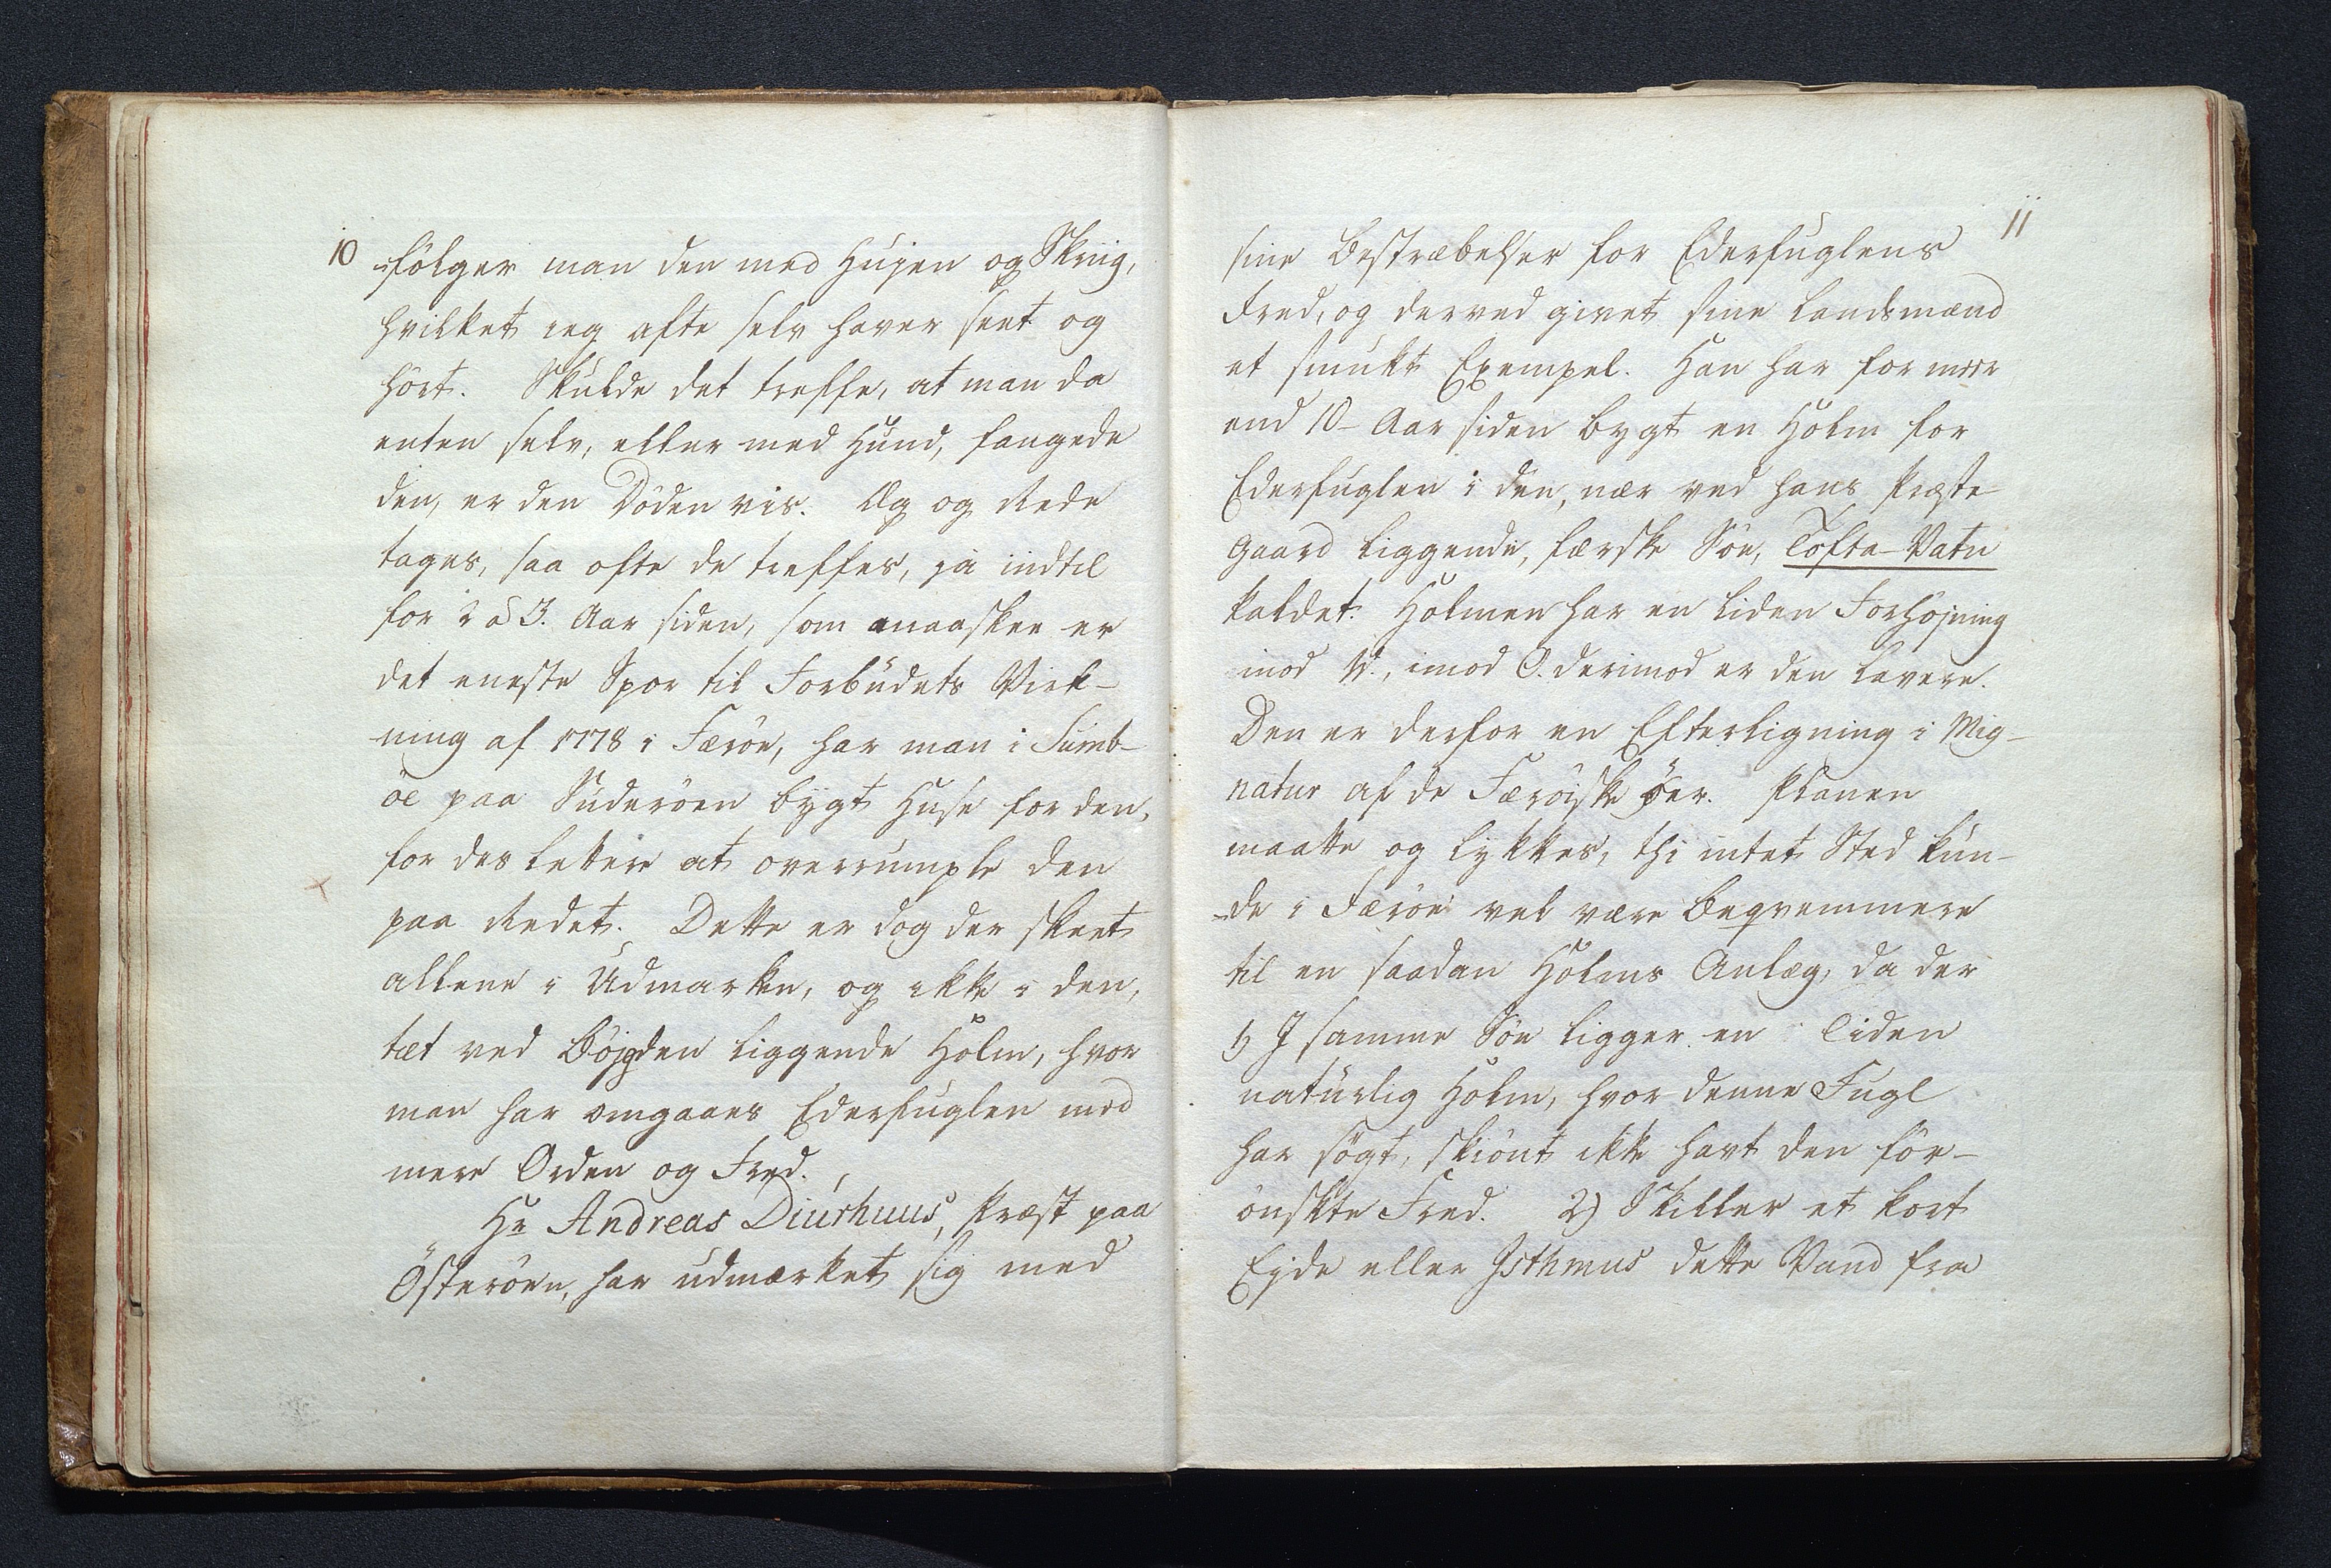 10
følger man den med Hujen og Skriig,
hvilket ieg ofte selv haver seet og
hört. Skulde det treffe, at man da
enten selv, eller med Hund, fangede
den, er den Döden vis. Æg og Rede
tages, saa ofte de treffes, ja indtil
for 2 à 3. Aar siden, som maaskee er
det eneste Spor til Forbudets Virk-
ning af 1778 i Færöe, har man i Sumb-
öe paa Suderöen bygt Huse for den,
for des lettere at overrumple den
paa Redet. Dette er dog der skeet
allene i Udmarken, og ikke i den,
tæt ved Böjgden liggende Holm, hvor
man har omgaaes Ederfuglen med
mere Orden og Fred.
Hr Andreas Diurhuus, Præst paa
Österöen, har udmærket sig med
11
sine Bestræbelser for Ederfuglens
Fred, og derved givet sine Landsmænd
et smukt Exempel. Han har for meer
end 10- Aar siden bygt en Holm for
Ederfuglen i den, nær ved hans Præste
gaard liggende, færske Söe, Tofta-Vatn
kaldet. Holmen har en liden Forhöjning
imod V., imod O. derimod er den lavere.
Den er derfor en Efterligning i Mig-
natur af de Færöiske öer. Planen
maatte og lykkes, thi intet Sted kun-
de i Færöe vel være beqvemmere
til en saadan Holms Anlæg, da der
1) J samme Söe ligger en liden
naturlig Holm, hvor denne Fugl
har sögt, skiönt ikke havt den for-
önskte Fred. 2) Skiller et kort
Eyde eller Jsthmus dette Vand fra